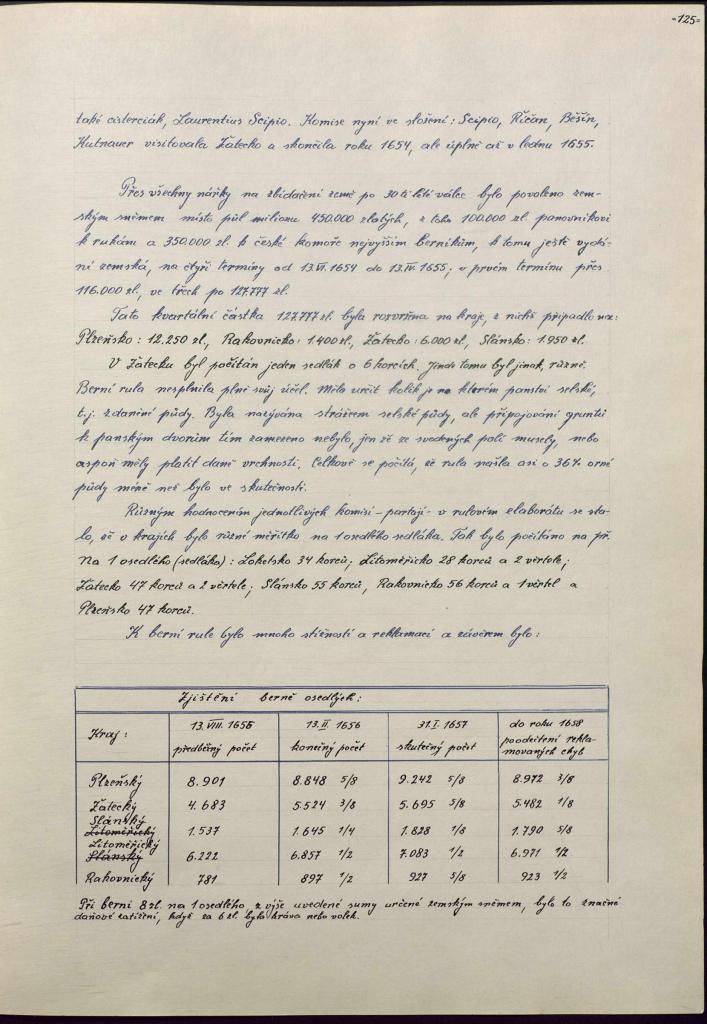 -125-
také cisterciák, Laurentius Scipio. Komise nyní ve složení: Scipio, Říčan, Běšín,
Kutnauer visitovala Žatecko a skončila roku 1654, ale úplně až v lednu 1655.
Přes všechny nářky na zbídačení země po 30ti leté válce bylo povoleno zem-
ským sněmem místo půl milionu 450.000 zlatých, z toho 100.000 zl. panovníkovi
k rukám a 350.000 zl. k české komoře nejvyšším berníkům, k tomu ještě vydá-
ní zemská, na čtyři termíny od 13.VI.1654 do 13.IV.1655; v prvém termínu přes
116.000 zl., ve třech po 127.777 zl.
Tato kvartální částka 127.777 zl. byla rozvržena na kraje, z nichž připadlo na:
Plzeňsko: 12.250 zl., Rakovnicko: 1.400 zl., Žatecko: 6.000 zl., Slánsko: 1.950 zl.
V Žatecku byl počítán jeden sedlák o 6 korcích. Jinde tomu byl jinak, různě.
Berní rula nesplnila plně svůj účel. Měla určit kolik je na kterém panství selské,
t.j. zdaněné půdy. Byla nazývána strážcem selské půdy, ale připojování gruntů
k panským dvorům tím zamezeno nebylo, jen že ze svedených polí musely, nebo
aspoň měly platit daně vrchnosti. Celkově se počítá, že rula našla asi o 36% orné
půdy méně než bylo ve skutečnosti.
Různým hodnocením jednotlivých komisí - partají - v rulovém elaborátu se sta-
lo, že v krajích bylo různé měřítko na 1 osedlého sedláka. Tak bylo počítáno na př.
Na 1 osedlého (sedláka): Loketsko 34 korců, Litoměřicko 28 korců a 2 věrtele;
Žatecko 47 korců a 2 věrtele; Slánsko 55 korců, Rakovnicko 56 korců a 1 věrtel a
Plzeňsko 47 korců.
K berní rule bylo mnoho stížností a reklamací a závěrem bylo:
Zjištění berně osedlých:
Kraj: 13.VIII.1655 předběžný počet 13.II.1656 konečný počet 31.I.1657 skutečný počet do roku 1658 poodečtení rekla- movaných chyb
Plzeňský 8.901 8.848 5/8 9.242 5/8 8.972 3/8
Žatecký 4.683 5.524 3/8 5.695 5/8 5.482 1/8
Slánský
Litoměřický 1.537 1.645 1/4 1.828 1/8 1.790 5/8
Litoměřický
Slánský 6.222 6.857 1/2 7.083 1/2 6.971 1/2
Rakovnický 781 897 1/2 927 5/8 923 1/2
Při berni 8 zl. na 1 osedlého, z výše uvedené sumy určené zemským sněmem, bylo to značné
daňové zatížení, když za 6 zl. byla kráva nebo volek.